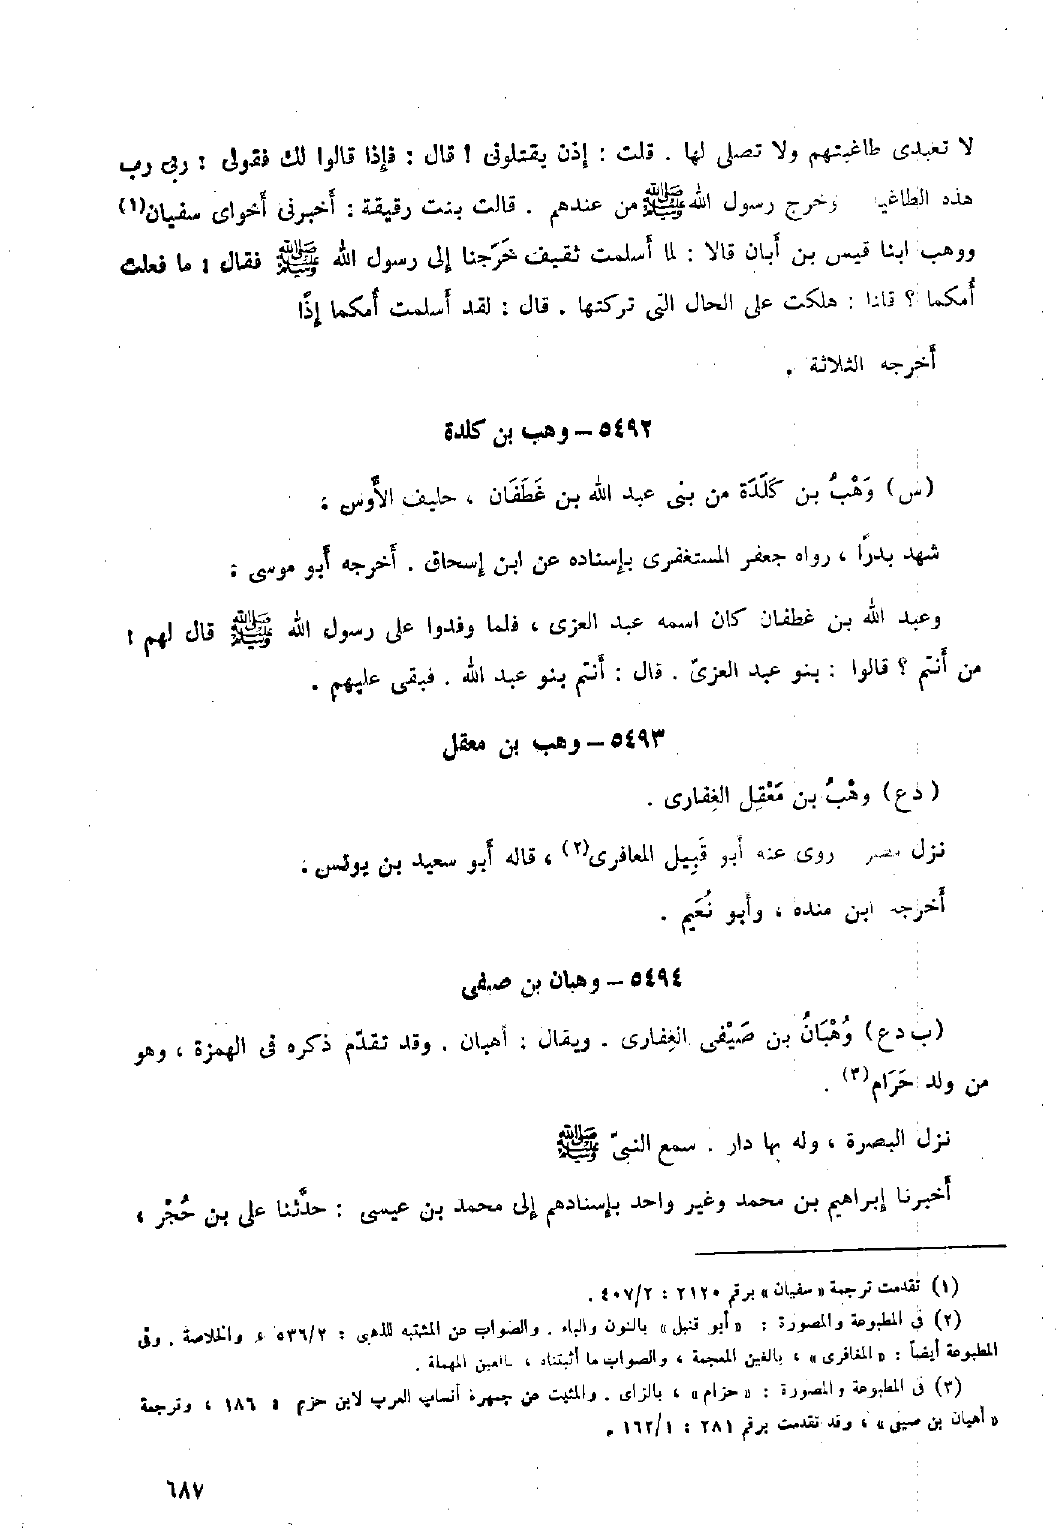 لا تعبدى طاغيتهم ولا تصلى لها . قلت : إذن يقتلونى ! قال : فإذا قالوا لك فقولى : ربى رب
هذه الطاغية وخرج رسول الله ﷺ من عندهم . قالت بنت رقيقة : أخبرنى أخواى سفيان(١)
ووهب ابنا قيس بن أبان قالا : لما أسلمت ثقيف خَرَجنا إلى رسول الله ﷺ فقال : ما فعلت
أمكما ؟ قلنا : هلكت على الحال التى تركتها . قال : لقد أسلمت أمكما إذًا
أخرجه الثلاثة .
٥٤٩٢ – وهب بن كلدة
(س) وَهْبُ بن كَلَدَة من بنى عبد الله بن غَطَفَان ، حليف الأوس :
شهد بدرًا ، رواه جعفر المستغفرى بإسناده عن ابن إسحاق . أخرجه أبو موسى :
وعبد الله بن غطفان كان اسمه عبد العزى ، فلما وفدوا على رسول الله ﷺ قال لهم :
من أنتم ؟ قالوا : بنو عبد العزىّ . قال : أنتم بنو عبد الله . فبقى عليهم .
٥٤٩٣ – وهب بن معقل
(دع) وهْبُ بن مَعْقِل الغِفارى .
نزل مصر روى عنه أبو قَبِيل المعافرى(٢) ، قاله أبو سعيد بن يونس :
أخرجه ابن منده ، وأبو نُعَيم .
٥٤٩٤ – وهبان بن صيفى
(ب دع) وُهْبَانُ بن صَيْفى الغِفارى . ويقال : أهبان . وقد تقدّم ذكره فى الهمزة ، وهو
من ولد حَرَام(٣) .
نزل البصرة ، وله بها دار . سمع النبىّ ﷺ
أخبرنا إبراهيم بن محمد وغير واحد بإسنادهم إلى محمد بن عيسى : حدَّثنا على بن حُجْر ،
(١) تقدمت ترجمة « سفيان » برقم ٢١٢٠ : ٤٠٧/٢ .
(٢) فى المطبوعة والمصورة : « أبو قنبل » بالنون والباء . والصواب عن المشتبه للذهبى : ٥٣٦/٢ ، والخلاصة . وفى
المطبوعة أيضاً : « المغافرى » ، بالغين المعجمة ، والصواب ما أثبتناه ، بالعين المهملة .
(٣) فى المطبوعة والمصورة : « حزام » ، بالزاى . والمثبت عن جمهرة أنساب العرب لابن حزم : ١٨٦ ، وترجمة
« أهبان بن صيفى » ، وقد تقدمت برقم ٢٨١ : ١٦٢/١ .
٦٨٧